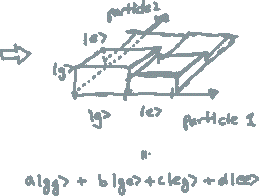 particle 2
|e>
|g>
|g> |e>
particle 1
"
a|gg> + b|ge> + c|eg> + d|ee>